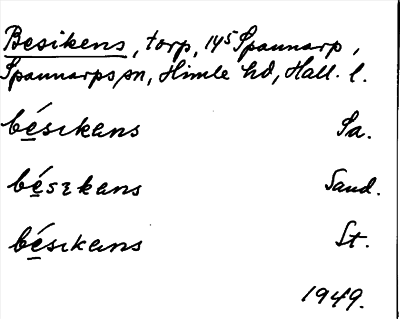 Besikens, torp, 14⁵ Spannarp,
Spannarps sn, Himle hd, Hall. l.
bésıkans Sa.
bésɛkans Sand.
bésıkans St.
1949.